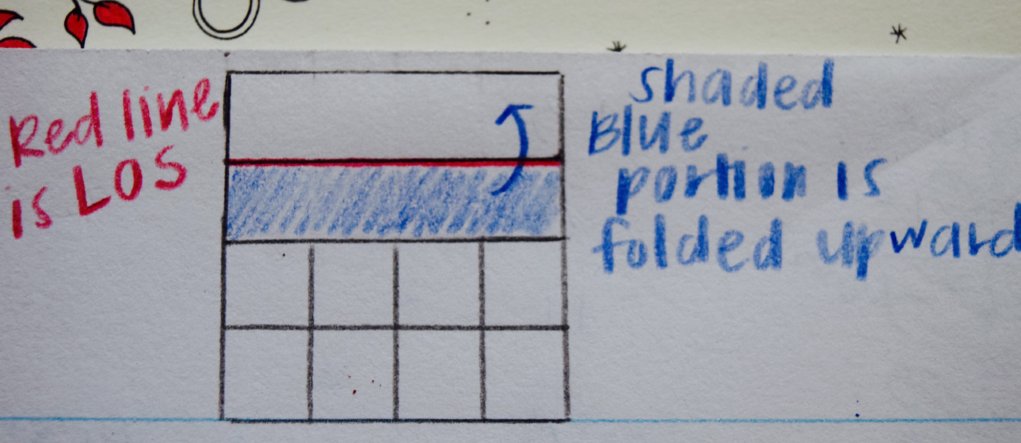 Red line
is LOS
shaded
Blue
portion is
folded upward